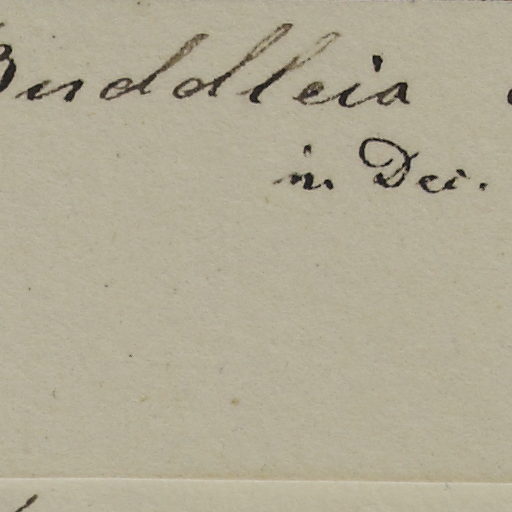 Buddleia
in Dec.